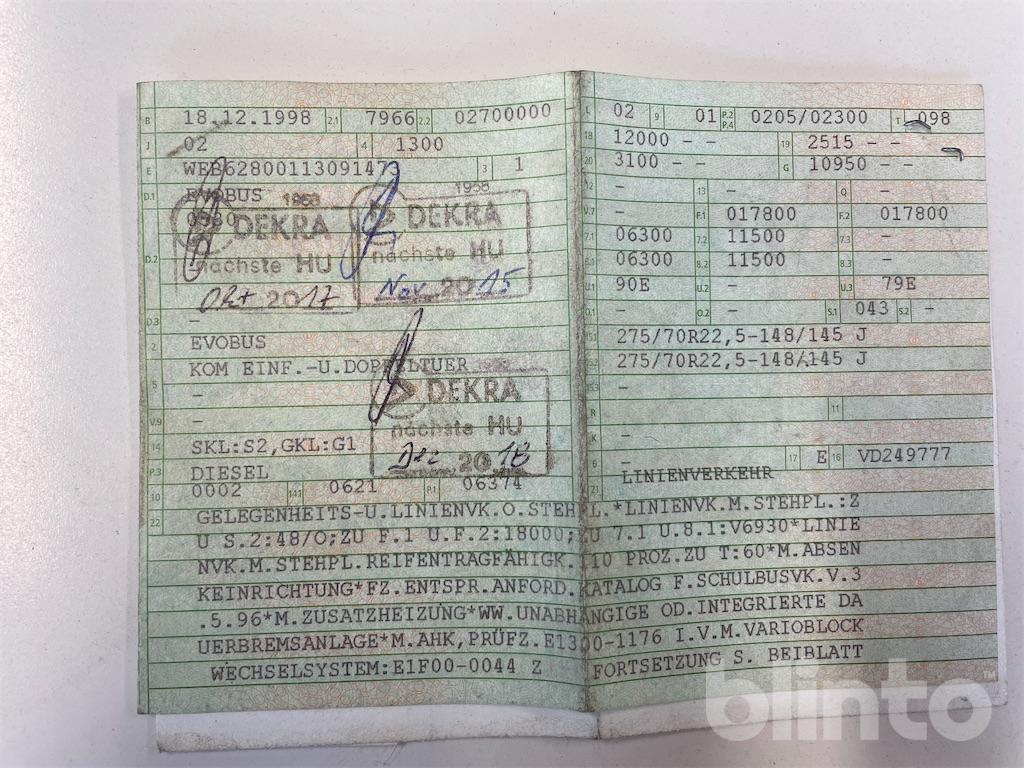 B 18.12.1998 2.1 7966 2.2 02700000
J 02 4 1300
E WEB62800113091473 3 1
D.1 EVOBUS
0530
1958
DEKRA
nächste HU
Okt 2017
1958
DEKRA
nächste HU
Nov 2015
D.2
D.3 -
2 EVOBUS
KOM EINF.-U.DOPPELTUER
5 -
DEKRA
nächste HU
Dez 2018
V.9 -
14 SKL:S2,GKL:G1
P.3 DIESEL
10 0002 14.1 0621 P.1 06374
L 02 9 01 P.2 P.4 0205/02300 T 098
18 12000 - - 19 2515 - -
20 3100 - - G 10950 - -
12 - 13 - Q -
V.7 - F.1 017800 F.2 017800
7.1 06300 7.2 11500 7.3 -
8.1 06300 8.2 11500 8.3 -
U.1 90E U.2 - U.3 79E
O.1 - O.2 - S.1 043 S.2 -
15.1 275/70R22,5-148/145 J
15.2 275/70R22,5-148/145 J
15.3 -
R - 11
K -
6 - 17 E 16 VD249777
21 LINIENVERKEHR
22 GELEGENHEITS-U.LINIENVK.O.STEHPL.*LINIENVK.M.STEHPL.:Z
U S.2:48/O;ZU F.1 U.F.2:18000;ZU 7.1 U.8.1:V6930*LINIE
NVK.M.STEHPL.REIFENTRAGFÄHIGK.110 PROZ.ZU T:60*M.ABSEN
KEINRICHTUNG*FZ.ENTSPR.ANFORD.KATALOG F.SCHULBUSVK.V.3
.5.96*M.ZUSATZHEIZUNG*WW.UNABHÄNGIGE OD.INTEGRIERTE DA
UERBREMSANLAGE*M.AHK,PRÜFZ.E1300-1176 I.V.M.VARIOBLOCK
WECHSELSYSTEM:E1F00-0044 Z FORTSETZUNG S. BEIBLATT
blinto™